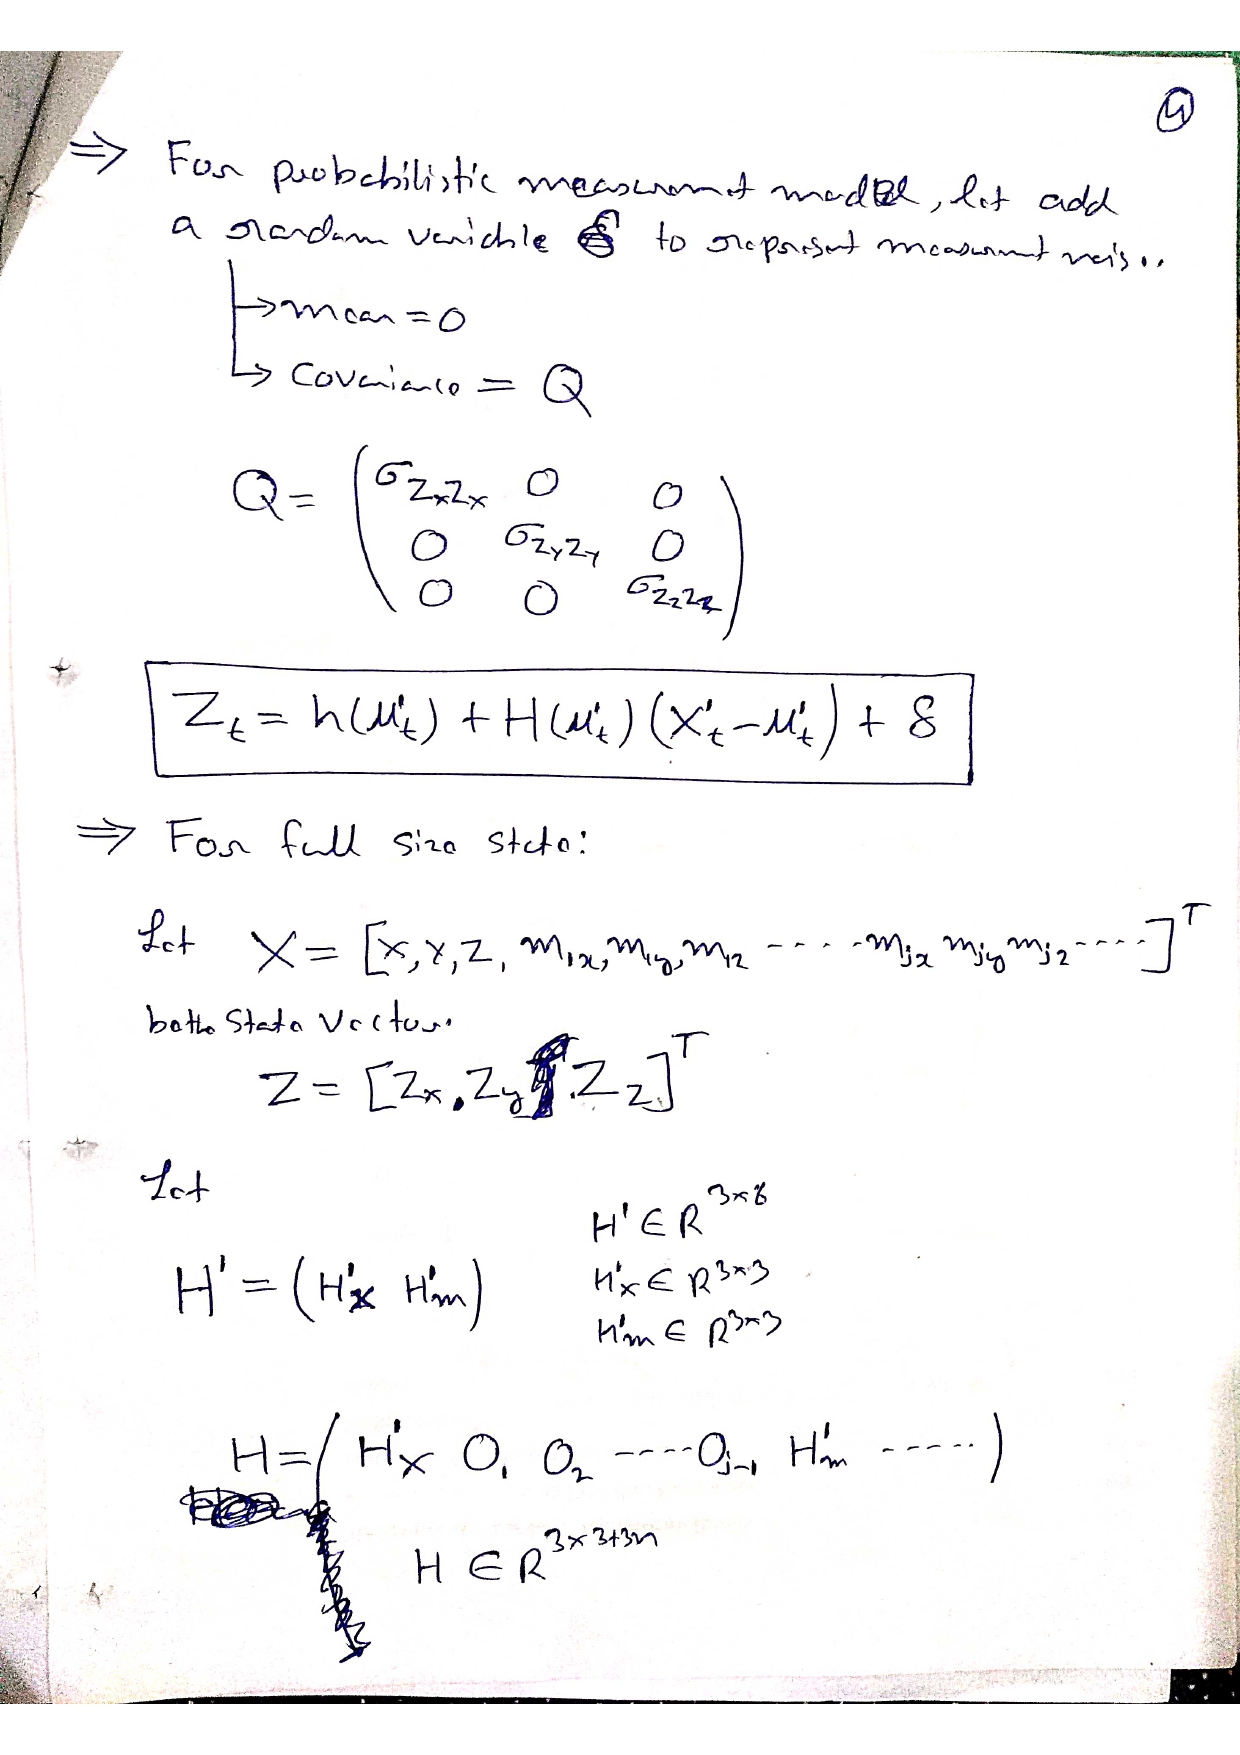 4
⇒ For probabilistic measurement model, let add
a random variable δ to represent measurment nois..
→ mean = 0
→ Covariance = Q
Q = ( σ_{ZxZx} 0 0
0 σ_{ZyZy} 0
0 0 σ_{ZzZz} )
Z_t = h(μ'_t) + H(μ'_t) (X'_t - μ'_t) + δ
⇒ For full size state:
Let X = [X, Y, Z, m_{1x}, m_{1y}, m_{1z} ---- m_{jx} m_{jy} m_{jz} ----]^T
be the State Vector.
Z = [Z_x, Z_y, Z_z]^T
Let
H' ∈ R^{3×6}
H' = (H'_x H'_m) H'_x ∈ R^{3×3}
H'_m ∈ R^{3×3}
H = ( H'_x O_1 O_2 ---- O_{j-1} H'_m ----- )
H ∈ R^{3×3+3n}